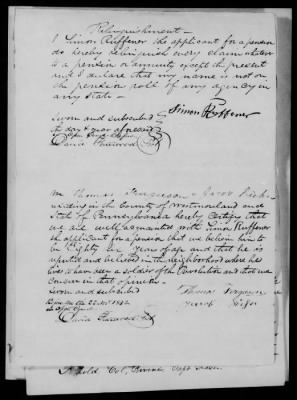 Relinquishment—
I Simon Ruffener the applicant for a pension
do hereby relinquish every claim whatever
to a pension or annuity except the present
and I declare that my name is not on
the pension roll of any agency in
any State—
Sworn and subscribed
Simon Ruffener
the day & year aforesaid
David
We Thomas Ferguson &
residing in the County of Westmoreland and
State of Pennsylvania hereby certify that
we are well acquainted with Simon Ruffener
the applicant for a pension that we believe him to
be Eighty six years of age and that he is
reputed and believed in the neighborhood where he
lives to have been a soldier of the Revolution and that we
concur in that opinion
Sworn and subscribed
before me the 22 1832
Thomas Ferguson
in open Court
David
Col,